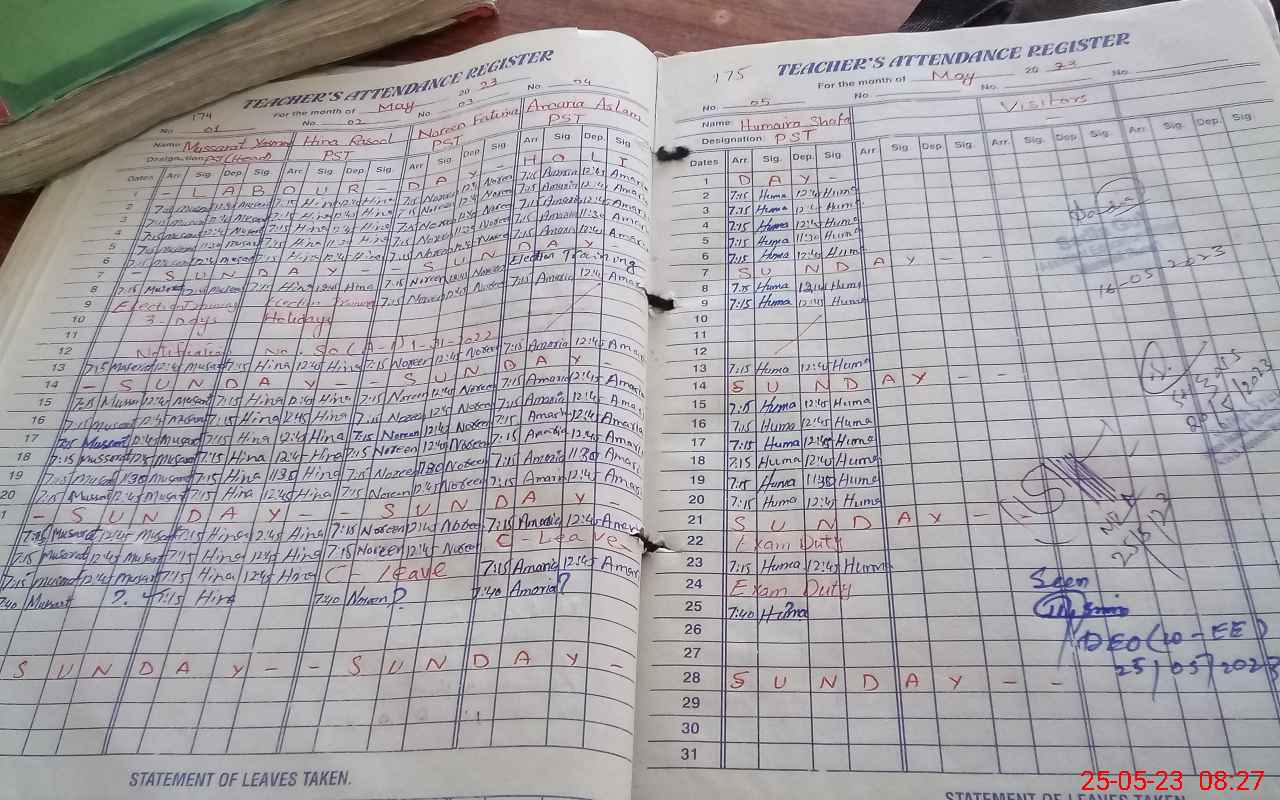 TEACHER'S ATTENDANCE REGISTER
174 For the month of May 2023
No. 01 No 02 03 No. 04
Name: Hina Rasool Noreen Fatima Amaria Aslam
Designation: PST(Head) PST PST PST
Dates Arr. Sig. Dep. Sig. Arr. Sig. Dep Sig. Arr. Sig. Dep. Sig. Arr. Sig. Dep. Sig.
1 - L A B O U R - D A Y - H O L I
2 7:15 Hina 12:45 Hina 7:15 Noreen 12:45 Noreen 7:15 Amaria 12:45 Amaria
3 7:15 Hina 12:45 Hina 7:15 Noreen 12:45 Noreen 7:15 Amaria 12:45
4 7:15 Hina 12:45 Hina 7:15 Noreen 12:45 Noreen 7:15 Amaria 12:45
5 7:15 Hina 11:30 Hina 7:15 Noreen 11:30 Noreen 7:15 Amaria 11:30
6 7:15 Hina 12:45 Hina 7:15 Noreen 12:45 Noreen 7:15 Amaria 12:45
7 - S U N D A Y - - S U N D A Y
8 7:15 Hina 12:45 Hina 7:15 Noreen Noreen Election Training
9 Election Training Election Training 7:15 Noreen Noreen 7:15 Amaria 12:45
10 3-Days Holidays
11
12 Notification No. So
13 7:15 Musarat 12:45 Musarat 7:15 Hina 12:45 Hina 7:15 Noreen 12:45 Noreen 7:15 Amaria 12:45
14 - S U N D A Y - - S U N D A Y -
15 7:15 Musarat 12:45 Musarat 7:15 Hina 12:45 Hina 7:15 Noreen 12:45 Noreen 7:15 Amaria 12:45 Amaria
16 7:15 Musarat 12:45 Musarat 7:15 Hina 12:45 Hina 7:15 Noreen 12:45 Noreen 7:15 Amaria 12:45
17 7:15 Musarat 12:45 Musarat 7:15 Hina 12:45 Hina 7:15 Noreen 12:45 Noreen 7:15 Amaria 12:45 Amaria
18 7:15 Musarat 12:45 Musarat 7:15 Hina 12:45 Hina 7:15 Noreen 12:45 Noreen 7:15 Amaria 12:45 Amaria
19 7:15 Musarat 11:30 Musarat 7:15 Hina 11:30 Hina 7:15 Noreen 11:30 Noreen 7:15 Amaria 11:30
20 7:15 Musarat 12:45 Musarat 7:15 Hina 12:45 Hina 7:15 Noreen 12:45 Noreen 7:15 Amaria 12:45
1 - S U N D A Y - - S U N D A Y -
7:15 Musarat 12:45 Musarat 7:15 Hina 12:45 Hina 7:15 Noreen 12:45 Noreen 7:15 Amaria 12:45
7:15 Musarat 12:45 Musarat 7:15 Hina 12:45 Hina 7:15 Noreen 12:45 Noreen C - Leave
7:15 Musarat 12:45 Musarat 7:15 Hina 12:45 Hina C - leave 7:15 Amaria 12:45
7:40 Musarat ? 7:15 Hina 7:40 Noreen ? 7:40 Amaria ?
S U N D A Y - - S U N D A Y -
STATEMENT OF LEAVES TAKEN.
175 TEACHER'S ATTENDANCE REGISTER
For the month of May 2023
No. 05 No. No. No.
Name: Humaira Shafa Visitors
Designation: PST
Dates Arr. Sig. Dep. Sig. Arr. Sig. Dep Sig. Arr. Sig. Dep. Sig. Arr. Sig. Dep. Sig
1 D A Y -
2 7:15 Huma 12:45 Huma
3 7:15 Huma 12:45 Huma
4 7:15 Huma 12:45 Huma
5 7:15 Huma 11:30 Huma
6 7:15 Huma 12:45 Huma
7 S U N D A Y - -
8 7:15 Huma 12:45 Huma
9 7:15 Huma 12:45 Huma
16-05-2023
10
11
12
13 7:15 Huma 12:45 Huma
14 S U N D A Y -
15 7:15 Huma 12:45 Huma
16 7:15 Huma 12:45 Huma
17 7:15 Huma 12:45 Huma
18 7:15 Huma 12:45 Huma
19 7:15 Huma 11:30 Huma
20 7:15 Huma 12:45 Huma
21 S U N D A Y -
22 Exam Duty
23 7:15 Huma 12:45 Huma
24 Exam Duty
25 7:40 Huma
26
27
28 S U N D A Y - -
29
30
31
Seen
DEO (W-EE)
25/05/2023
25-05-23 08:27
STATEMENT OF LEAVES TAKEN